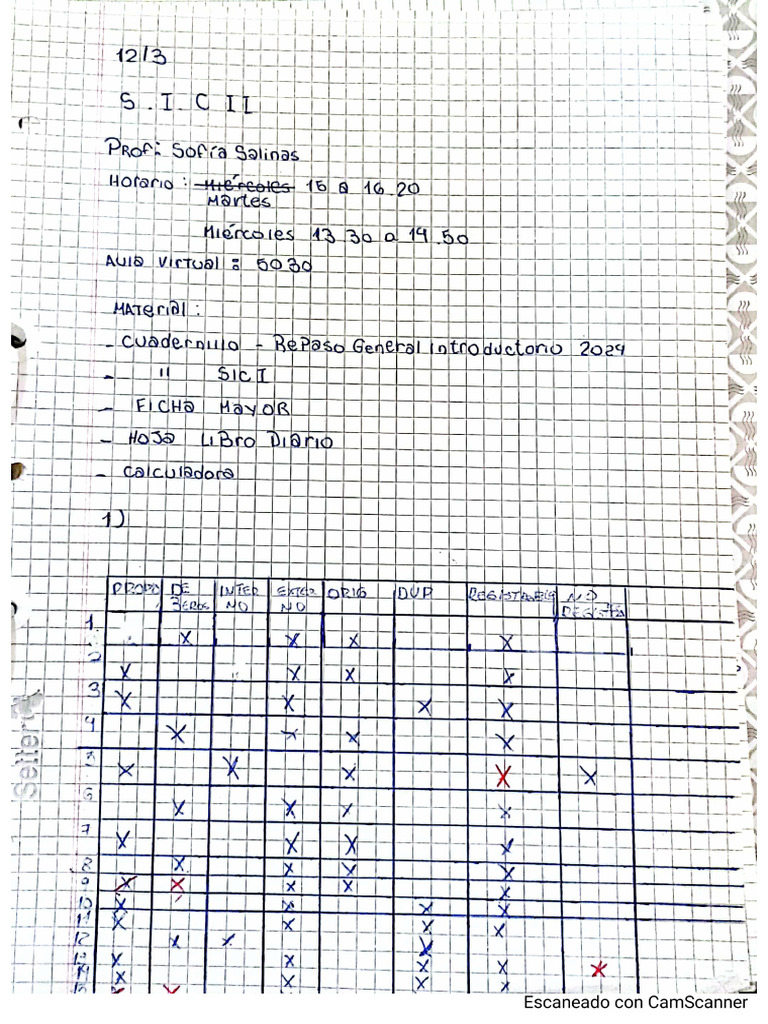 12/3
S.I.C II
Prof: Sofía Salinas
Horario: Miércoles 15 a 16.20
Martes
Miércoles 13.30 a 14.50
Aula Virtual: 5030
Material:
- Cuadernillo - Repaso General Introductorio 2024
- " SIC I
- FICHA MAYOR
- HOJA LIBRO DIARIO
- Calculadora
1)
PROPIO DE 3EROS INTERNO EXTERNO ORIG DUP REGISTRABLE NO REGISTRA
1. X X X X
2 X X X X
3 X X X X
4 X X X X
5 X X X X X
6 X X X X
7 X X X X
8 X X X X
9 X X X X X
10 X X X X
11 X X X X
12 X X X
13 X X X X X
14 X X X X
15 X X
Seller
Escaneado con CamScanner